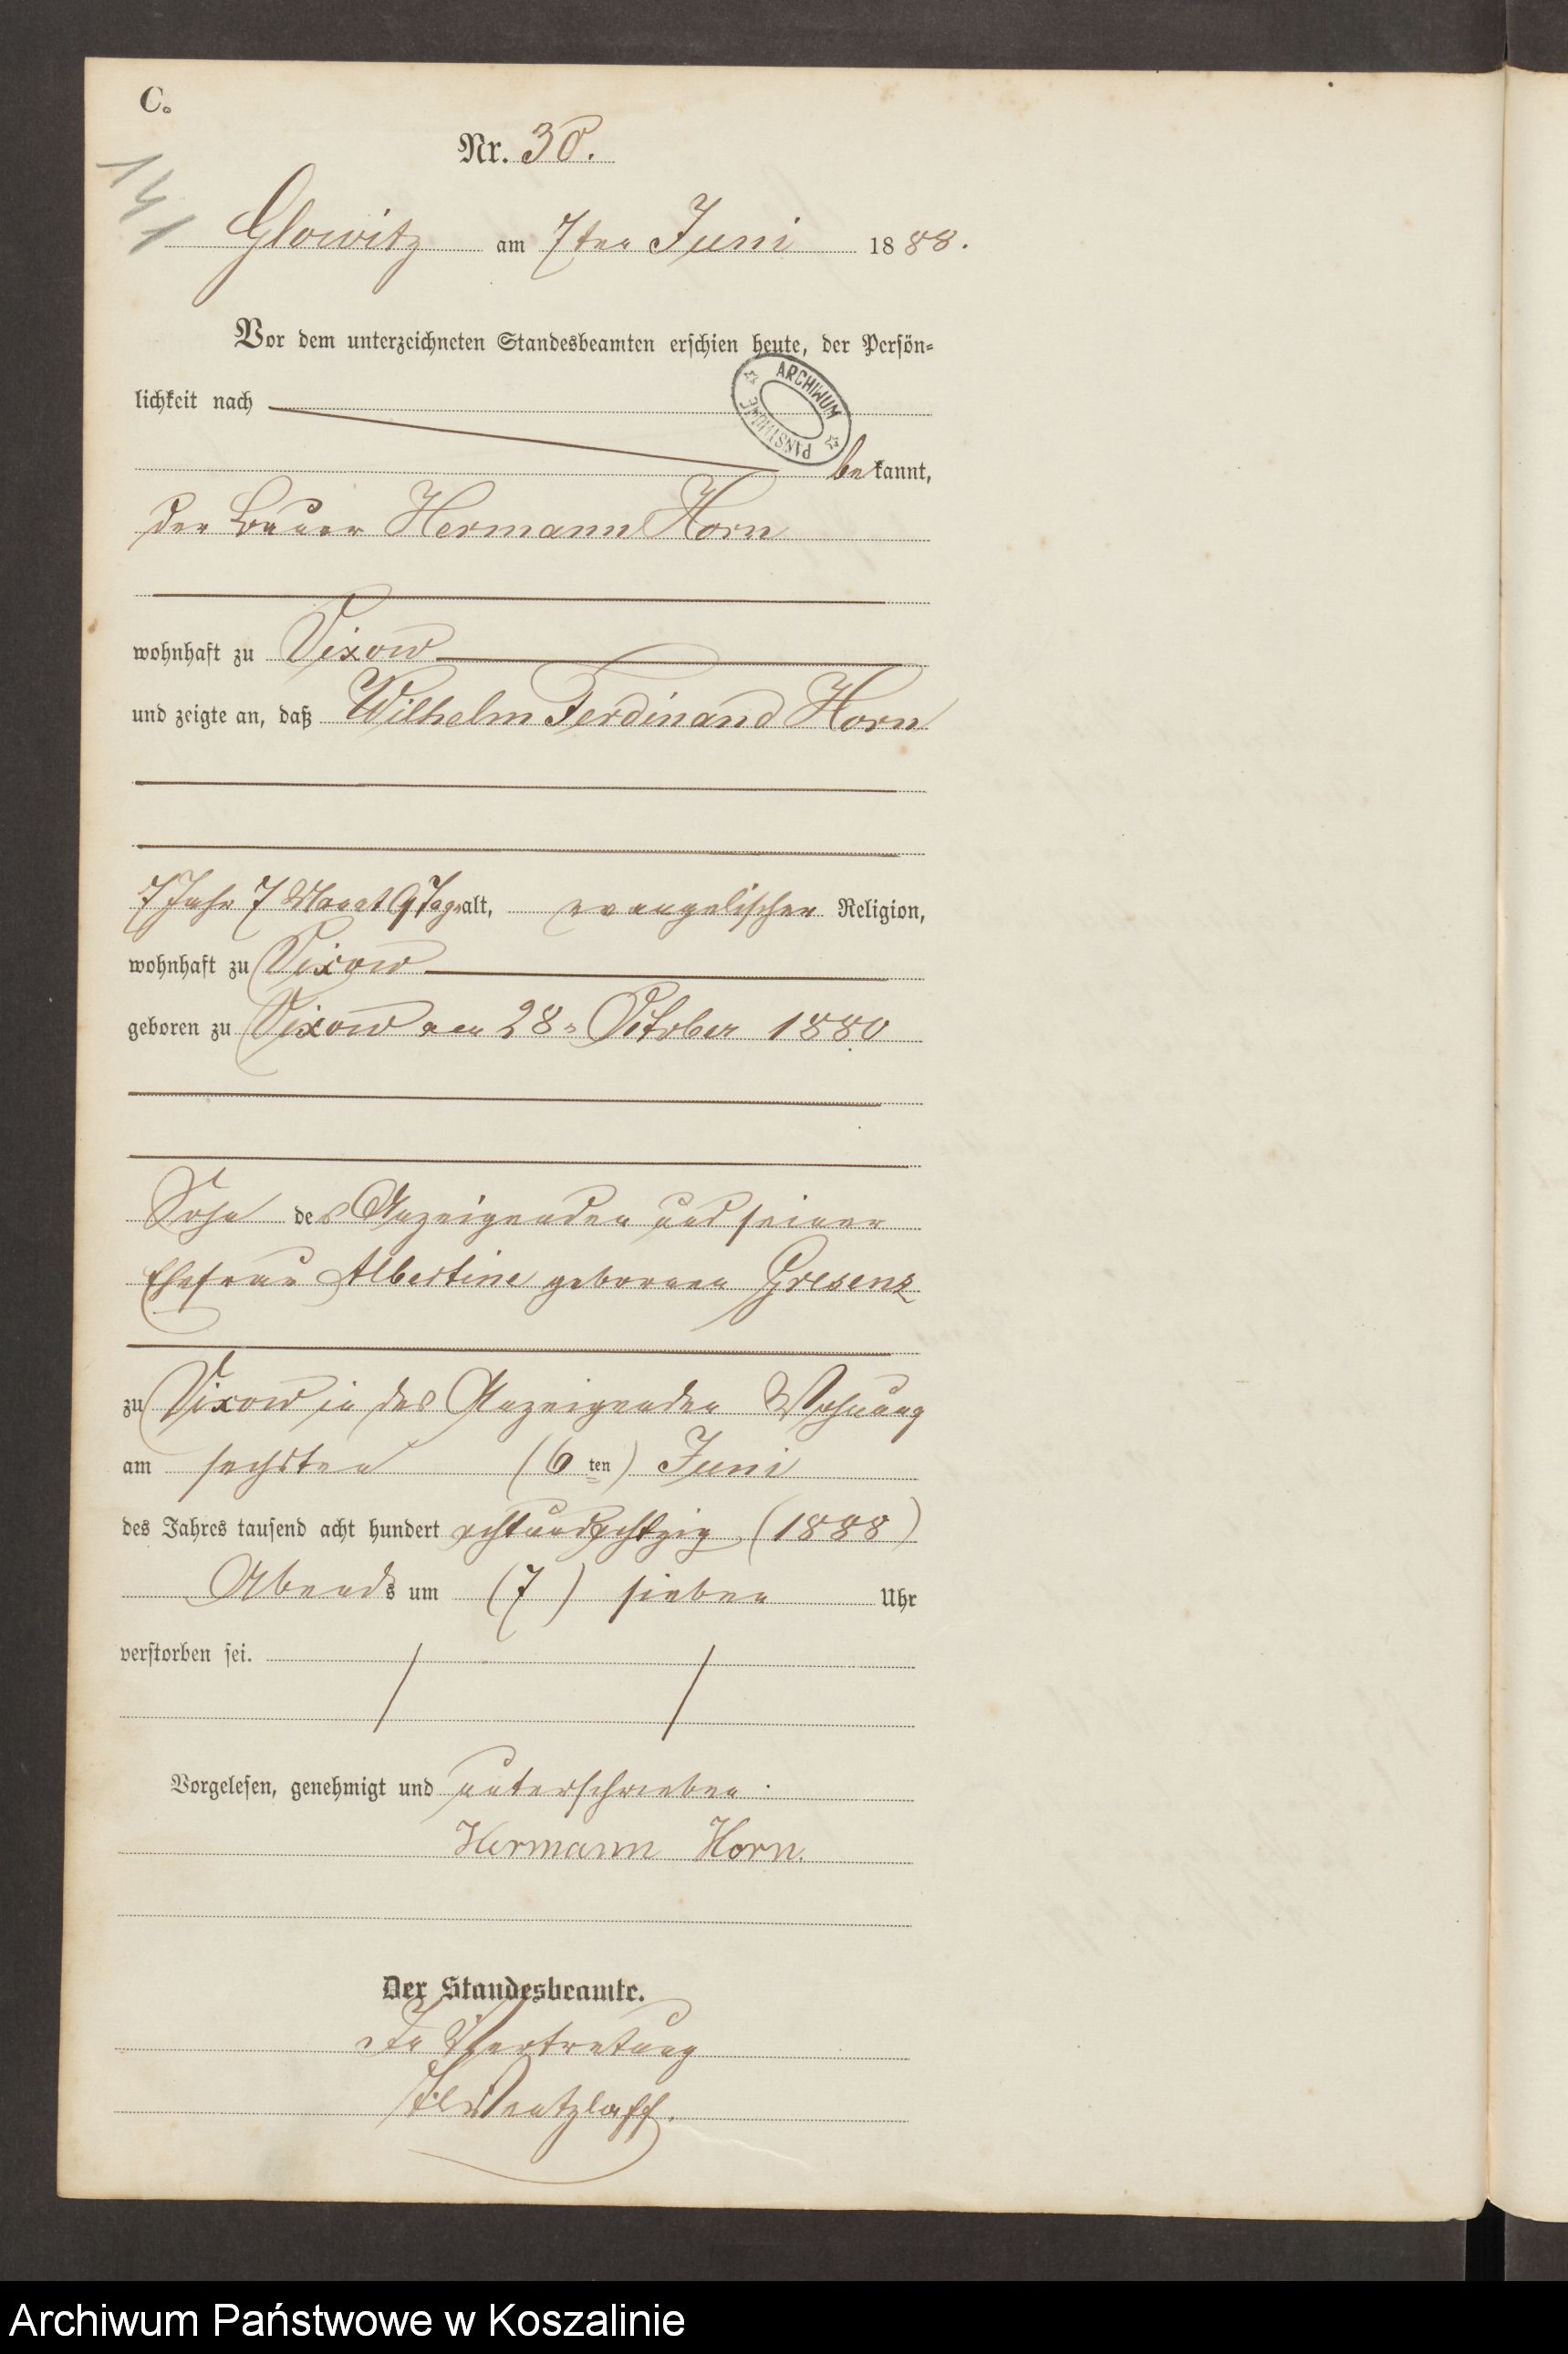 C.
Nr. 30.
141
Glowitz am 7ten Juni 1888.
Vor dem unterzeichneten Standesbeamten erschien heute, der Persön-
lichkeit nach
ARCHIWUM PAŃSTWOWE
bekannt,
der Bauer Hermann Horn
wohnhaft zu Vixow
und zeigte an, daß Wilhelm Ferdinand Horn
7 Jahr 7 Monat 9 Tage alt, evangelischer Religion,
wohnhaft zu Vixow
geboren zu Vixow am 28n October 1880
Sohn des Anzeigenden und seiner
Ehefrau Albertine geborenen Gresenz
zu Vixow in des Anzeigenden Wohnung
am sechsten (6 ten) Juni
des Jahres tausend acht hundert achtundachtzig (1888)
Abends um (7) sieben Uhr
verstorben sei.
Vorgelesen, genehmigt und unterschrieben.
Hermann Horn.
Der Standesbeamte.
In Vertretung
Wentzlaff.
Archiwum Państwowe w Koszalinie